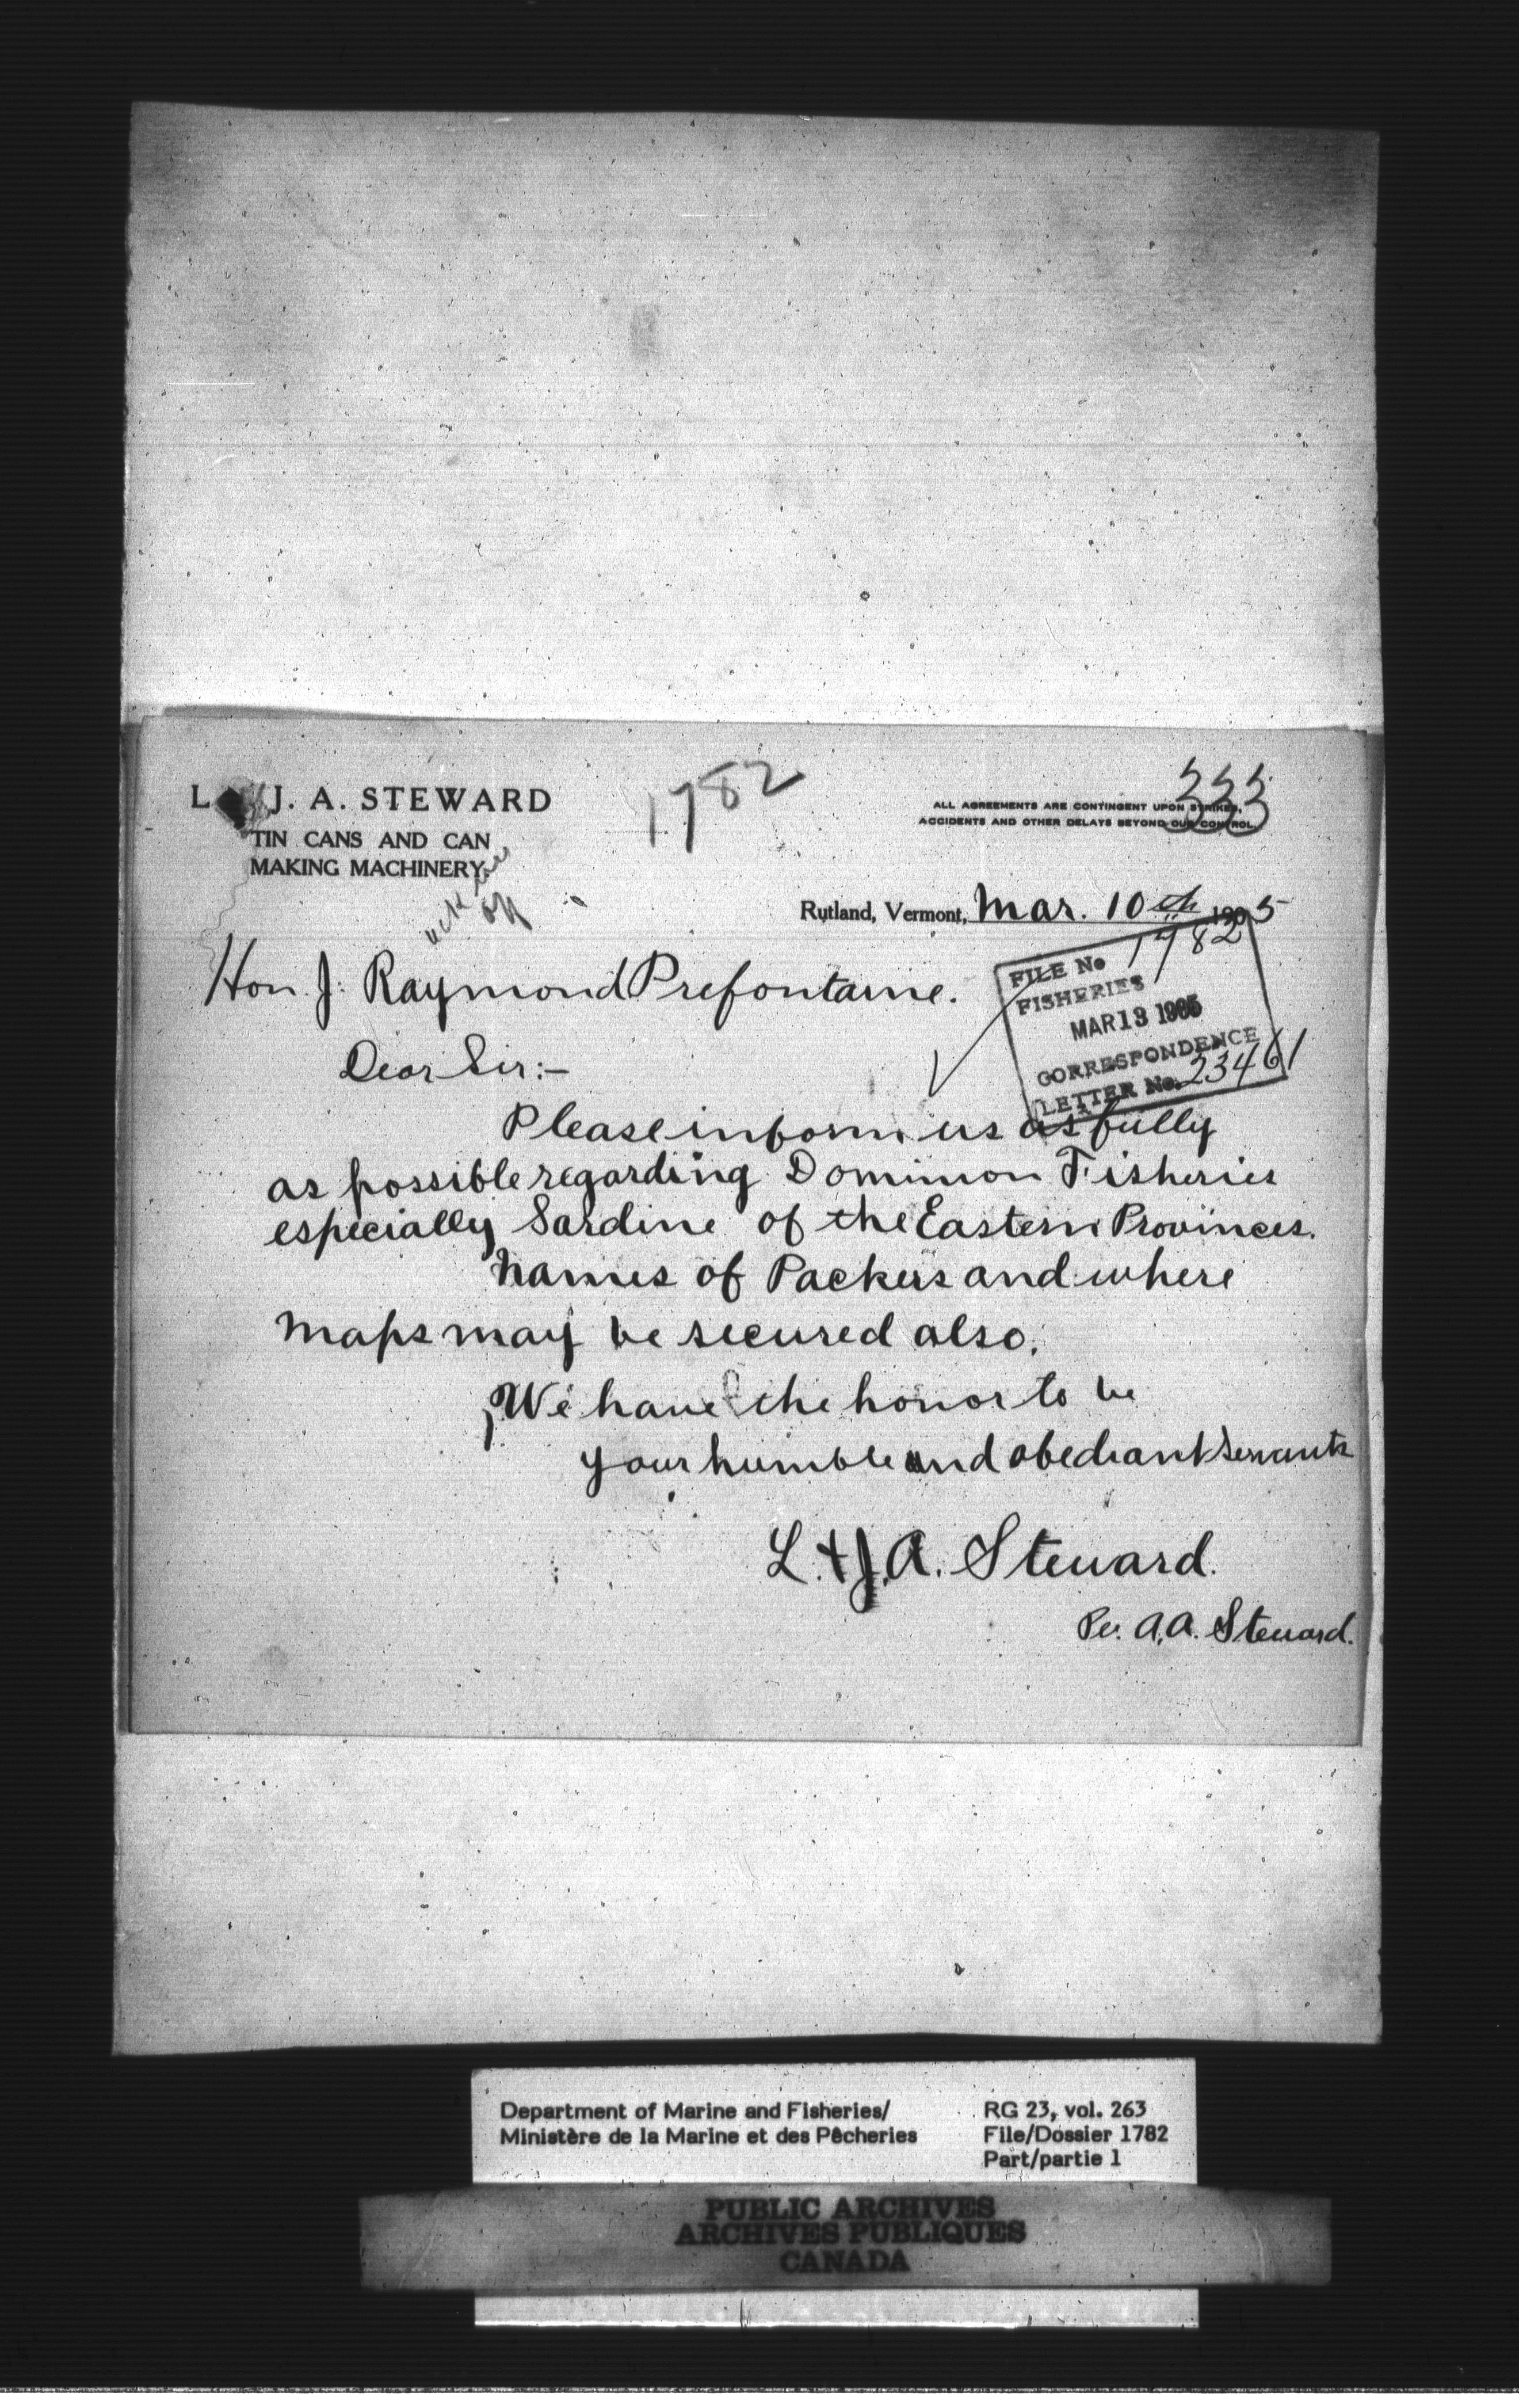 L. & J. A. STEWARD
TIN CANS AND CAN
MAKING MACHINERY.
1782
333
ALL AGREEMENTS ARE CONTINGENT UPON STRIKES,
ACCIDENTS AND OTHER DELAYS BEYOND OUR CONTROL.
Rutland, Vermont, Mar. 10th 1905
Hon. J. Raymond Prefontaine.
FILE No 1782
FISHERIES
MAR 13 1905
CORRESPONDENCE
LETTER No. 23461
Dear Sir:—
Please inform us as fully
as possible regarding Dominion Fisheries
especially Sardine of the Eastern Provinces.
Names of Packers and where
maps may be secured also.
We have the honor to be
your humble and obediant servants
L. + J. A. Steward.
Per. A. A. Steward.
Department of Marine and Fisheries/
Ministère de la Marine et des Pêcheries
RG 23, vol. 263
File/Dossier 1782
Part/partie 1
PUBLIC ARCHIVES
ARCHIVES PUBLIQUES
CANADA